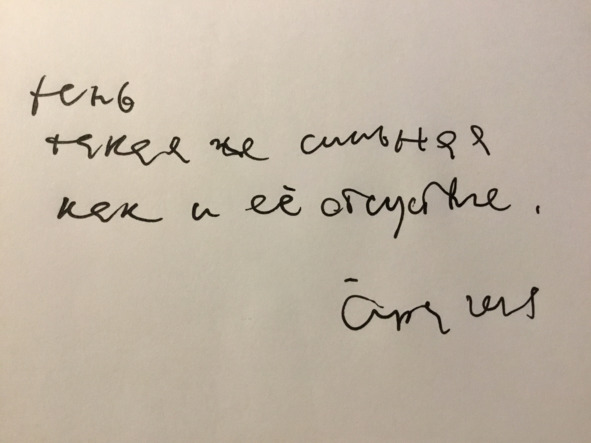 тень
такая же сильная
как и её отсутствие.